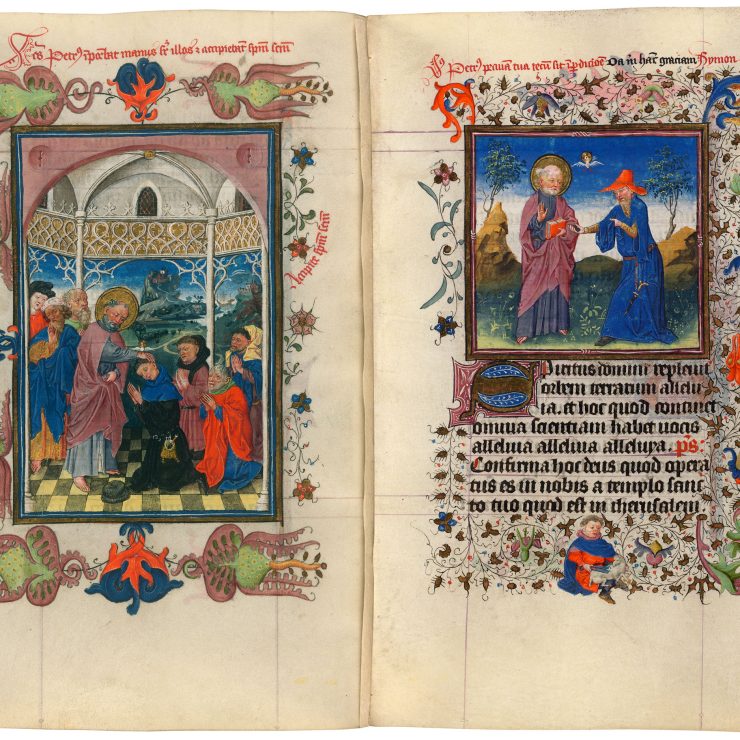 Petrus manus illos & accipiebant spm scm
Accipite spm scm
Petrus tua tecum sit Da m hanc graciam Symon
Spiritus domini replevit
orbem terrarum allelu
ia, et hoc quod continet
omnia scientiam habet vocis
alleluia alleluia alleluya. ps.
Confirma hoc deus quod opera
tus es in nobis a templo sanc
to tuo quod est in iherusalem